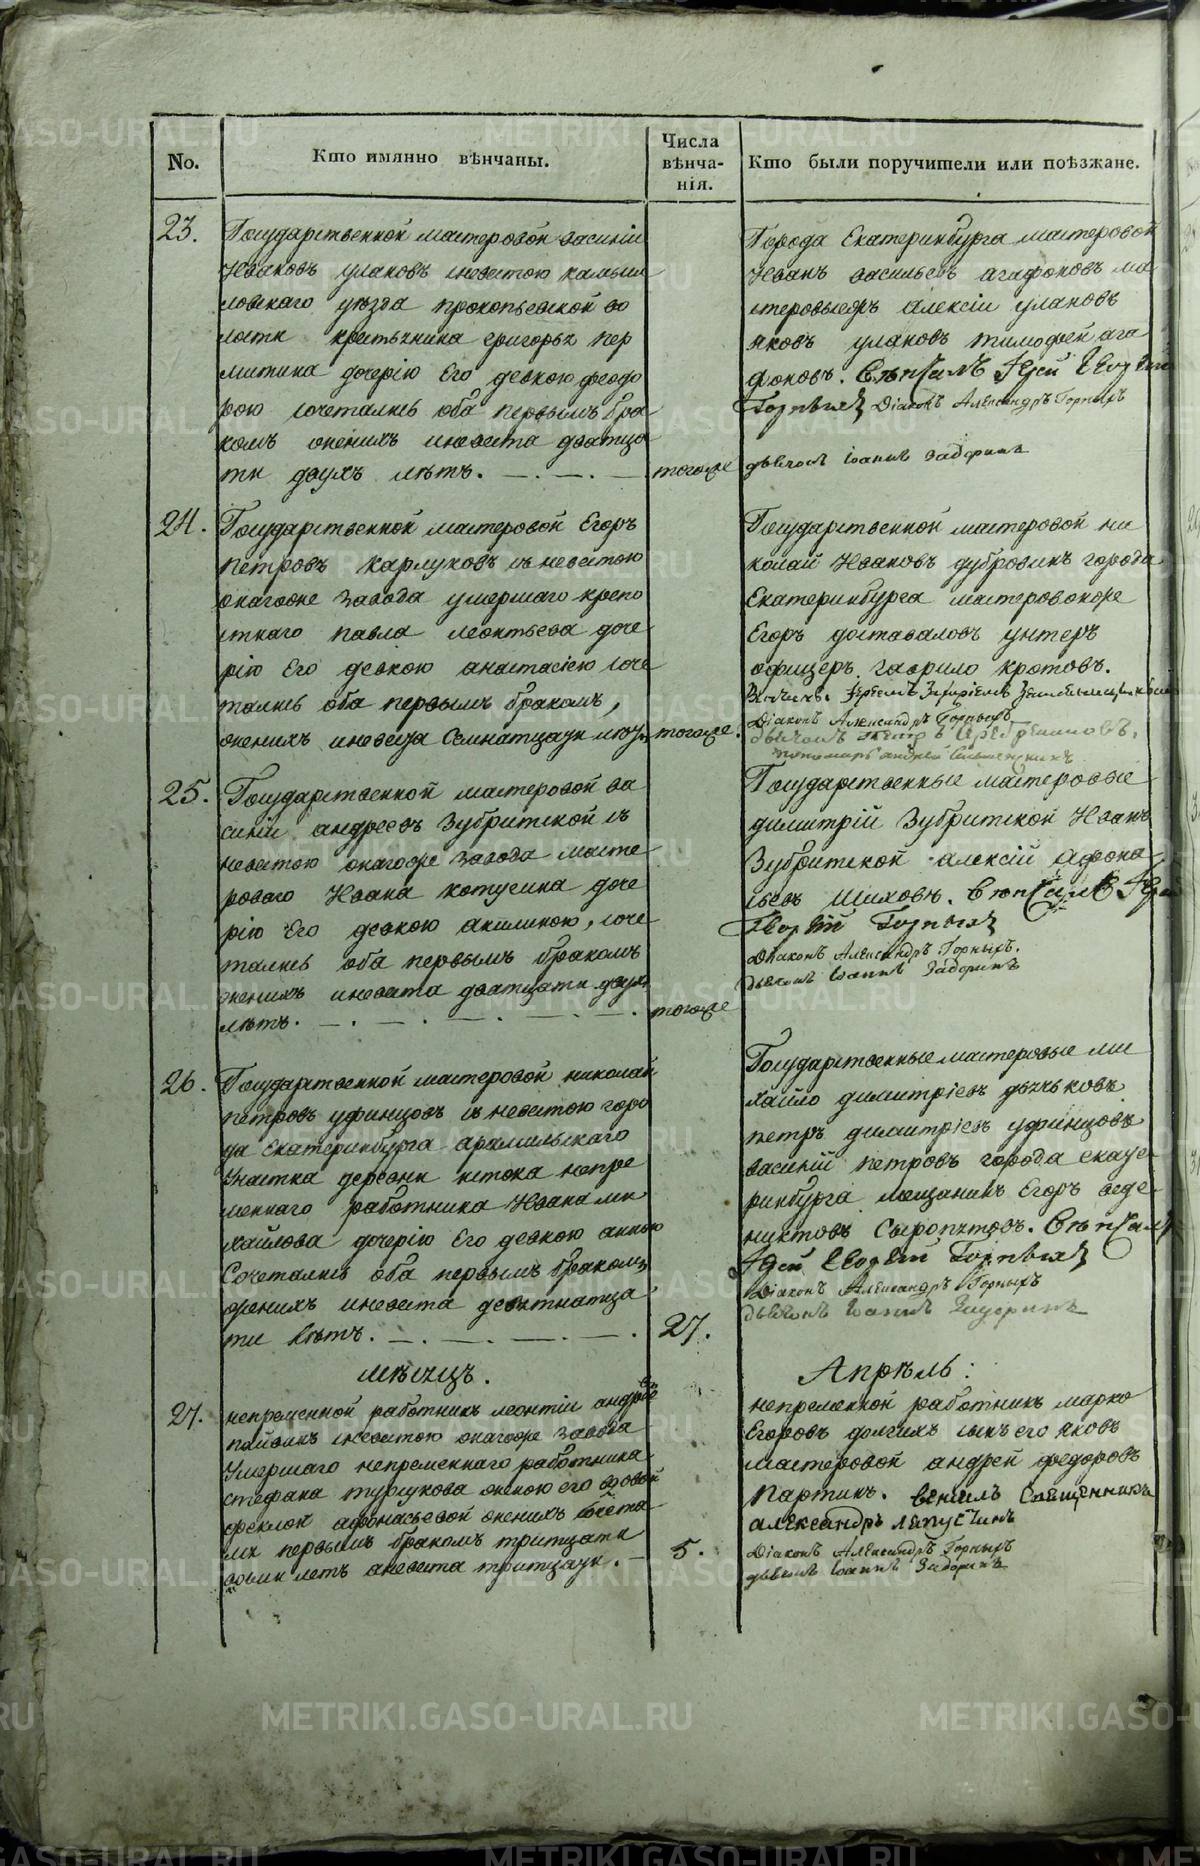 No.
Кто имянно вѣнчаны.
Числа
вѣнча-
нія.
Кто были поручители или поѣзжане.
23.
Государственной мастеровой василій
Ивановъ улановъ
ловскаго уѣзда прокопьевской во
лости крестьянина григорья пер
митина дочерію Его девкою феодо
рою сочетались оба первымъ бра
комъ женихъ иневеста дватца
ти двухъ лѣтъ.
тогоже
Города Екатеринбурга мастеровой
Иванъ васильевъ агафоновъ ма
стеровыежъ алексіи улановъ
яковъ улановъ тимофей ага
фоновъ.
Горныхъ Діаконъ Александръ Горныхъ
дьячокъ Іоаннъ
24.
Государственной мастеровой Егоръ
петровъ карлуковъ съ невестою
онагоже завода умершаго крепо
стнаго павла леонтьева доче
рію Его девкою анастасіею соче
тались оба первымъ бракомъ,
женихъ иневеста
тогоже.
Государственной мастеровой ни
колай Ивановъ дубровинъ города
Екатеринбурга мастеровойже
Егоръ доставаловъ унтеръ
офицеръ гаврило кротовъ.
Діаконъ Александръ Горныхъ
25.
Государственной мастеровой ва
силій андреевъ Зубритской съ
невестою онагоже завода масте
роваго Ивана котугина доче
рію Его девкою акилиною, соче
тались оба первымъ бракомъ
женихъ иневеста дватцати двухъ
лѣтъ.
тогоже
Государственные мастеровые
димитрій Зубритской Иванъ
Зубритской алексій афона
сьевъ шиховъ.
Горныхъ
Діаконъ Александръ Горныхъ.
дьячокъ Іоаннъ
26.
Государственной мастеровой николай
петровъ уфинцовъ съ невестою горо
да екатеринбурга арамильскаго
участка деревни истока непре
меннаго работника Ивана ми
хайлова дочерію Его девкою анною
Сочетались оба первымъ бракомъ
женихъ иневеста девятнатца
ти лѣтъ.
27.
Государственные мастеровые ми
хайло димитріевъ дьячьковъ
петръ димитріевъ уфинцовъ
василій петровъ города екате
ринбурга мещанинъ Егоръ веде
никтовъ Сыропятовъ.
Горныхъ
Діаконъ Александръ Горныхъ
дьячокъ Іоаннъ
мѣсяцъ.
Апрѣль:
27.
непременной работникъ леонтіи андрее
въ
иневестою онагоже завода
Умершаго непременнаго работника
стефана турсукова женою его вдовой
феклой афонасьевой женихъ
первымъ бракомъ тритцати
летъ аневеста тритцати.
5.
непременной работникъ марко
Егоровъ долгихъ сынъ его яковъ
мастеровой андрей федоровъ
Партинъ. венчалъ Священникъ
александръ лапустинъ
Діаконъ Александръ Горныхъ
дьячокъ Іоаннъ
METRIKI.GASO-URAL.RU